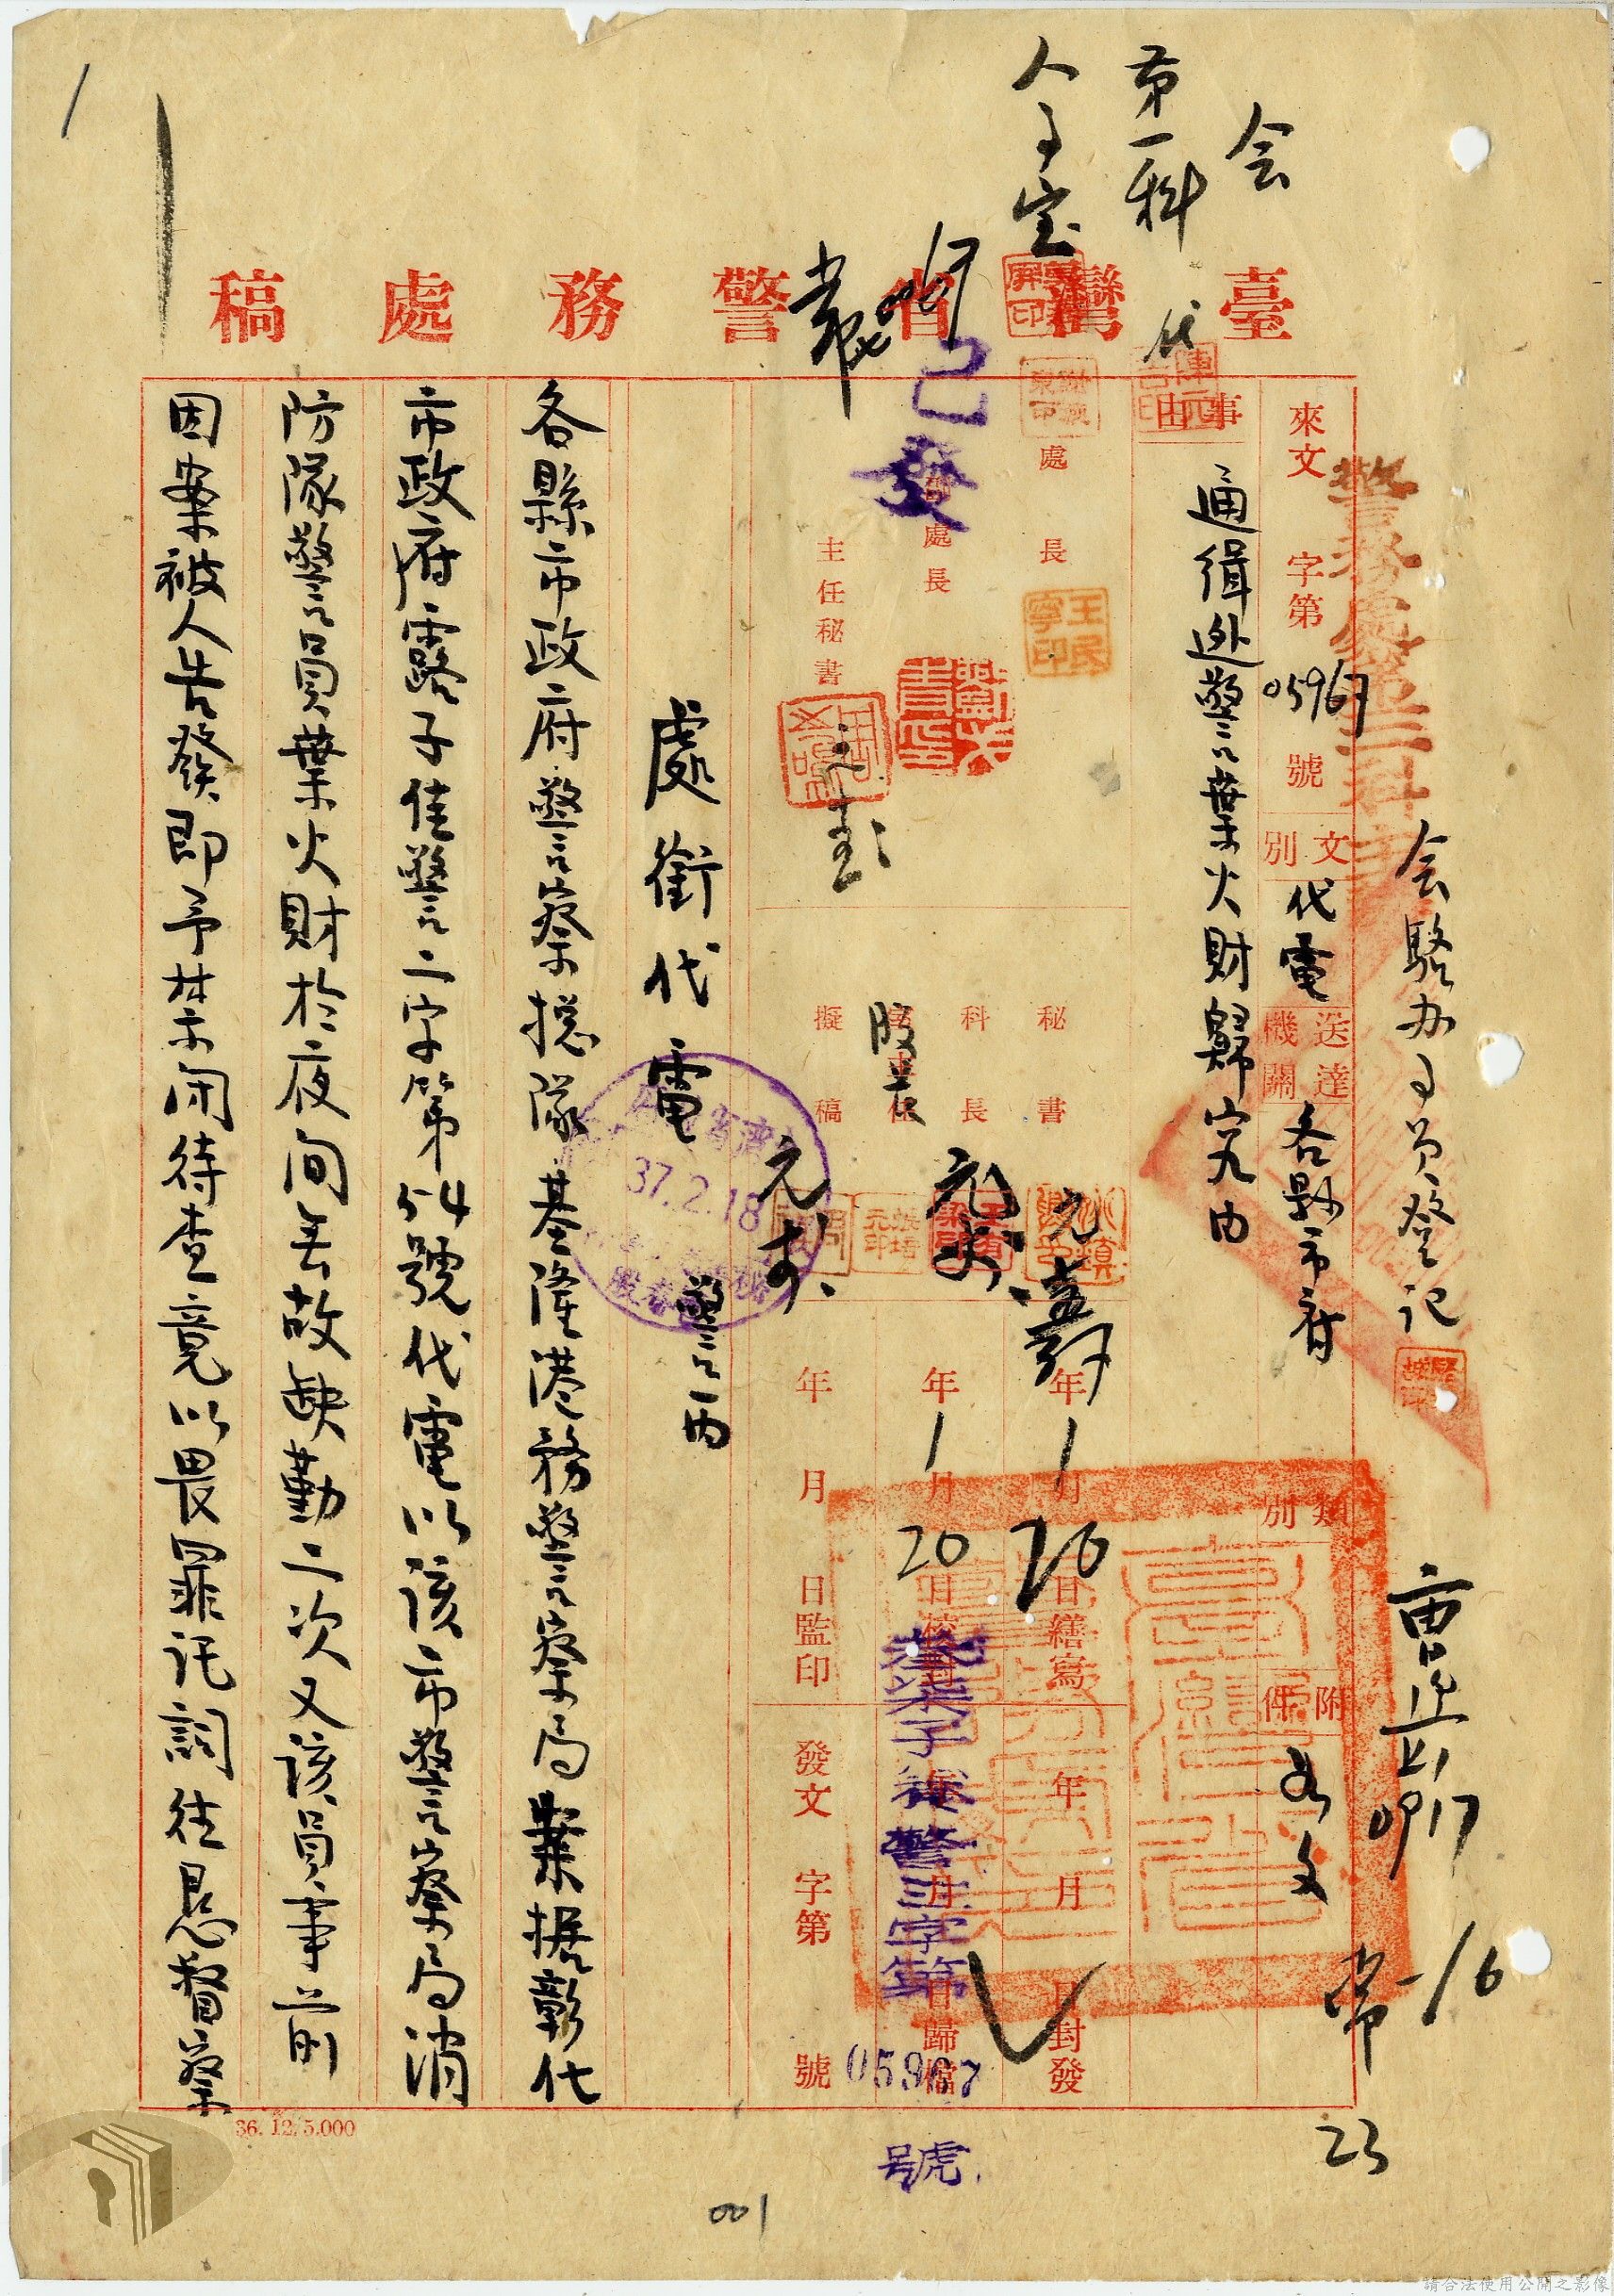 臺灣省警務處稿
会
第一科
人事室
代
已發
来文 字第05967號
文別 代電
送達機關 各縣市府
類別
附件 如文
事由
通緝逃警葉火財歸究由
会緊办事員登記
處長
副處長
主任秘書
秘書
科長
股長
擬稿
年1月20日繕寫
年1月20日校對
年 月 日監印
年 月 日封發
年 月 日歸檔
發文 字第 號
警三字第
05967
號
處銜代電 警丙
37.2.18
各縣市政府警察總隊基隆港務警察局案據彰化
市政府露子佳警二字第54號代電以該市警察局消
防隊警員葉火財於夜间無故缺勤二次又該員事前
因案被人告發即予禁闭待查竟以畏罪託詞往恳督察
36. 12. 5.000
001
0917
1/6
23
請合法使用公開之影像